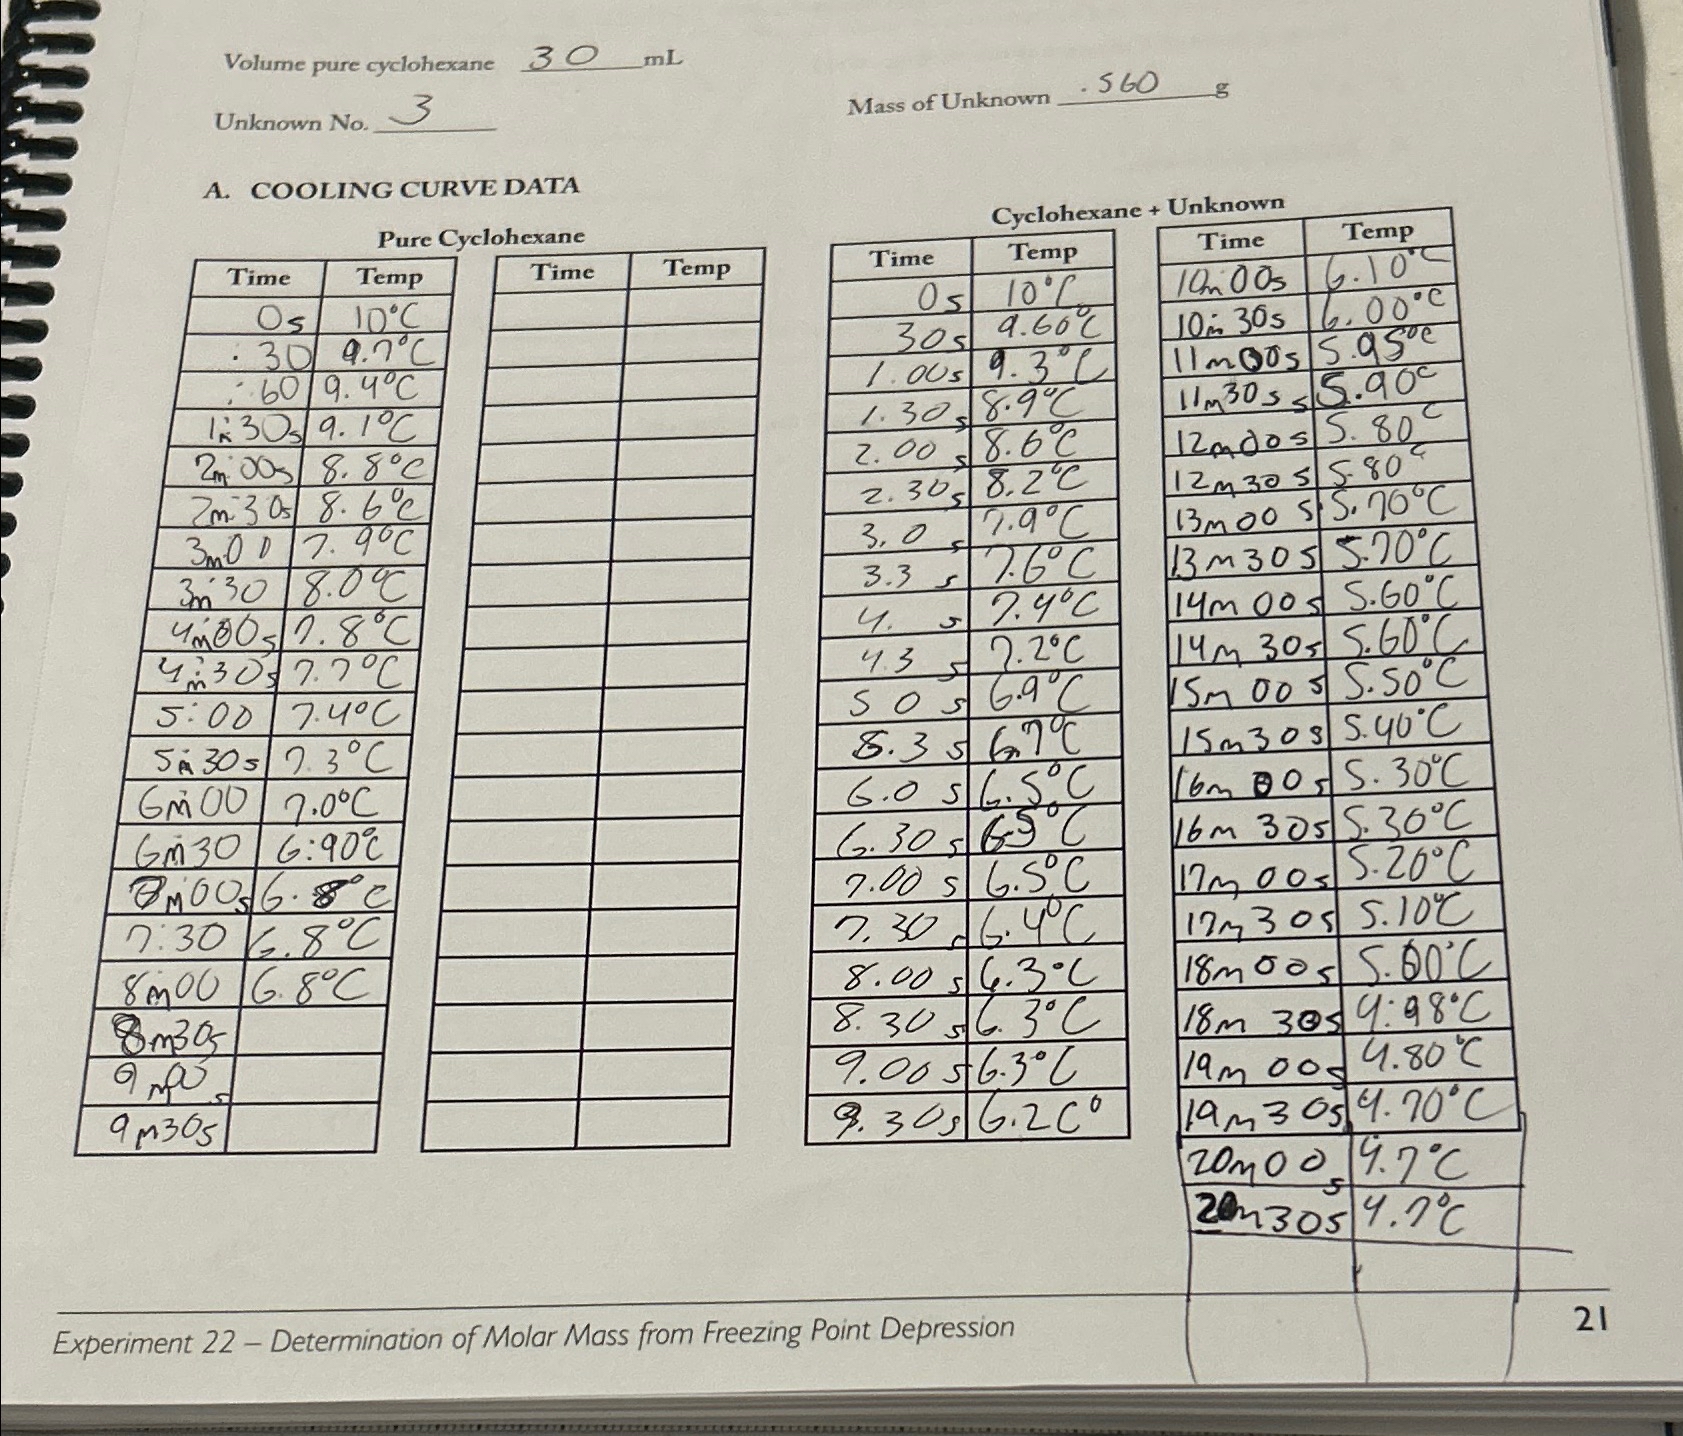 Volume pure cyclohexane 30 mL
Mass of Unknown .560 g
Unknown No. 3
A. COOLING CURVE DATA
Pure Cyclohexane
Time Temp Time Temp
0s 10°C
:30 9.7°C
:60 9.4°C
1m:30s 9.1°C
2m:00s 8.8°C
2m:30s 8.6°C
3m00 7.9°C
3m:30 8.0°C
4m:00s 7.8°C
4m:30s 7.7°C
5:00 7.4°C
5m:30s 7.3°C
6m:00 7.0°C
6m:30 6:90°C
7m:00s 6.8°C
7:30 6.8°C
8m00 6.8°C
8m30s
9m00s
9m30s
Cyclohexane + Unknown
Time Temp
0s 10°C
30s 9.60°C
1.00s 9.3°C
1.30s 8.9°C
2.00s 8.6°C
2.30s 8.2°C
3.0s 7.9°C
3.3s 7.6°C
4. s 7.4°C
4.3s 7.2°C
50s 6.9°C
5.3s 6.7°C
6.0s 6.5°C
6.30s 6.5°C
7.00s 6.5°C
7.30s 6.4°C
8.00s 6.3°C
8.30s 6.3°C
9.00s 6.3°C
9.30s 6.2C°
Time Temp
10m:00s 6.10°C
10m:30s 6.00°C
11m00s 5.95°C
11m30s 5.90°C
12m00s 5.80°C
12m30s 5.80°C
13m00s 5.70°C
13m30s 5.70°C
14m00s 5.60°C
14m30s 5.60°C
15m00s 5.50°C
15m30s 5.40°C
16m00s 5.30°C
16m30s 5.30°C
17m00s 5.20°C
17m30s 5.10°C
18m00s 5.00°C
18m30s 4.98°C
19m00s 4.80°C
19m30s 4.70°C
20m00s 4.7°C
20m30s 4.7°C
Experiment 22 – Determination of Molar Mass from Freezing Point Depression
21